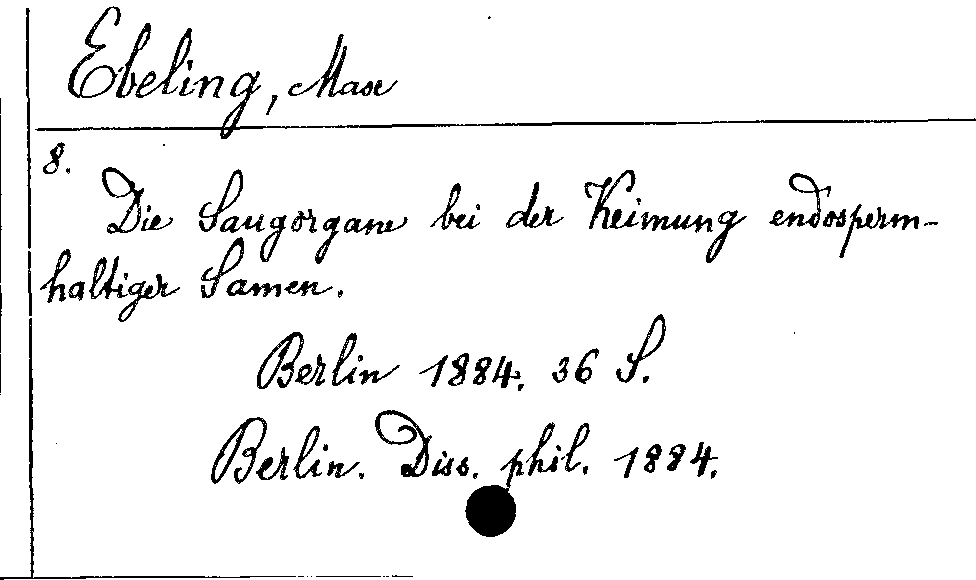 Ebeling, Max
8.
Die Saugorgane bei der Keimung endosperm-
haltiger Samen.
Berlin 1884. 36 S.
Berlin. Diss. phil. 1884.